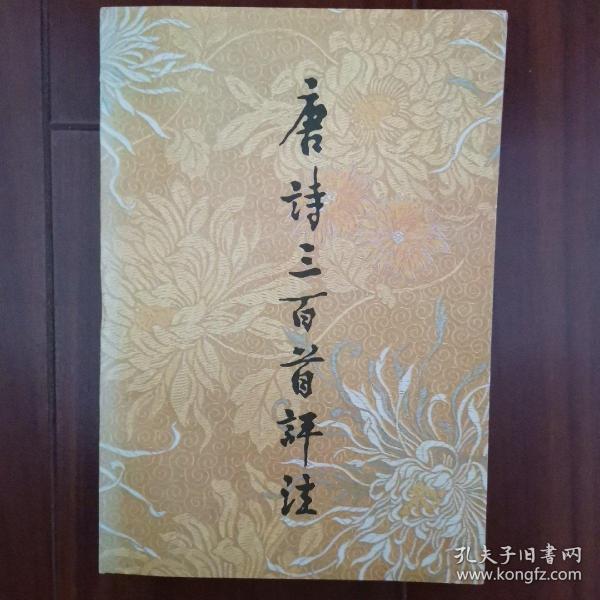 唐詩三百首評注
孔夫子旧書网
www.kongfz.com